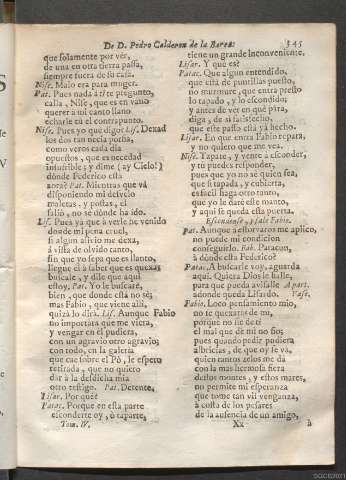 De D. Pedro Calderon de la Barca.
345
que solamente por vèr,
de una en otra tierra passa,
siempre fuera de su casa.
Nise. Malo era para muger.
Pat. Pues nada à ti te pregunto,
calla, Nise, que es en vano
querer à mi canto llano
echarle tù el contrapunto.
Nise. Pues yo què digo? Lis. Dexad
los dos tan necia porfia,
como veros cada dia
opuestos, que es necedad
insufrible; y dime (ay Cielo!)
dònde Federico està
aora? Pat. Mientras que và
disponiendo mi desvelo
maletas, y postas, el
saliò, no se dònde ha ido.
Lis. Pues yà que à verle he venido
donde mi pena cruel,
si algun alivio me dexa,
à vista de olvido tanto,
sin que yo sepa que es llanto,
llegue èl à saber que es quexa:
buscale, y dile que aqui
estoy. Pat. Yo le buscarè,
bien, que donde està no sè;
mas Fabio, que viene alli,
quizà lo dirà. Lis. Aunque Fabio
no importara que me viera,
y vengar en èl pudiera,
con un agravio otro agravio;
con todo, en la galeria
que cae sobre el Pò, le espero
retirada, que no quiero
dar à la desdicha mia
otro testigo. Pat. Detente.
Lisar. Por què?
Patac. Porque en esta parte
esconderte oy, ò taparte,
Tom. IV.
tiene un grande inconveniente.
Lisar. Y què es?
Patac. Que algun entendido,
que està de puntillas puesto,
no murmure, que entra presto
lo tapado, y lo escondido;
y antes de ver en què pára,
diga, de sì satisfecho,
que este passo està yà hecho.
Lisar. En que entra Fabio repara,
y no quiero que me vea.
Nise. Tapate, y vente à esconder,
y tù puedes responder,
pues que yo no sè quien sea,
que si tapada, y cubierta,
es facil haga otro tanto,
que yo le darè este manto,
y aqui se queda esta puerta.
Escondense, y sale Fabio.
Pat. Aunque à estorvaros me aplico,
no puede mi condicion
conseguirlo. Fab. Patacon,
à dònde està Federico?
Patac. A buscarle voy, aguarda
aqui. Quiera Dios le halle,
para que pueda avisalle A part.
adonde queda Lisarda. Vase.
Fabio. Loco pensamiento mio,
no te quexaràs de mi,
porque no fie de tì
el mal que de mì no fio;
pues quando pedir pudiera
albricias, de que oy se và,
quien tantos zelos me dà
con la mas hermosa fiera
destos montes, y estos mares,
no permite mi esperanza
que tome tan vil venganza,
à costa de los pesares
de la ausencia de un amigo,
Xx
à